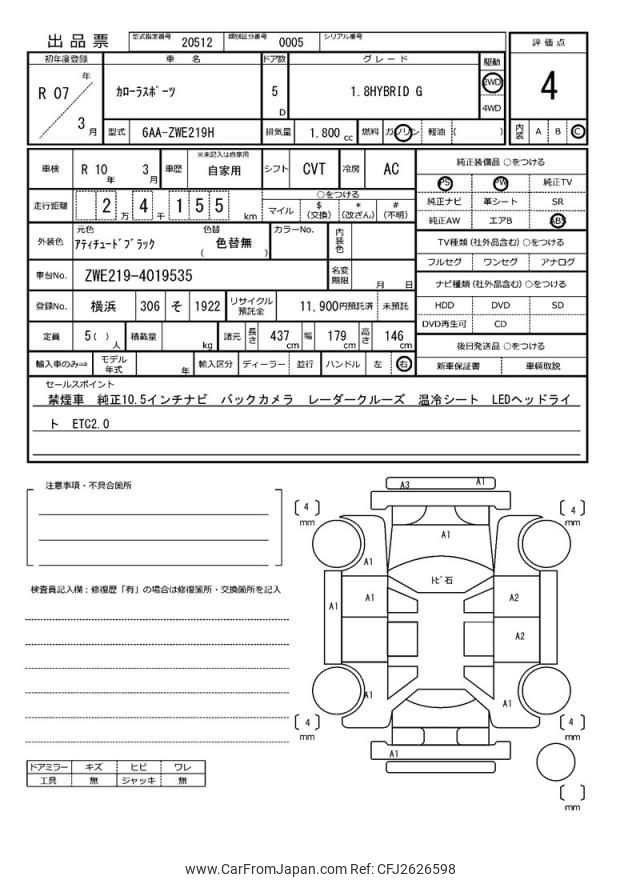 出品票 型式指定番号 20512 類別区分番号 0005 シリアル番号
評価点
初年度登録 車名 ドア数 グレード 駆動
R 07 年 3 月 カローラスポーツ 5 D 1.8HYBRID G 2WD 4WD
4
型式 6AA-ZWE219H 排気量 1,800 cc 燃料 ガソリン 軽油 ( )
内装 A B C
車検 R 10 年 3 月 車歴 ※未記入は自家用 自家用 シフト CVT 冷房 AC
純正装備品 ○をつける
PS PW 純正TV
純正ナビ 革シート SR
純正AW エアB ABS
走行距離 2 万 4 千 1 5 5 km
○をつける
マイル $ (交換) * (改ざん) # (不明)
外装色 元色 アティチュードブラック 色替 ( 色替無 ) カラーNo. 内装色
TV種類 (社外品含む) ○をつける
フルセグ ワンセグ アナログ
車台No. ZWE219-4019535 名変期限 月 日
ナビ種類 (社外品含む) ○をつける
HDD DVD SD
DVD再生可 CD
登録No. 横浜 306 そ 1922 リサイクル預託金 11,900円預託済 未預託
定員 5 ( ) 人 積載量 kg 諸元 長さ 437 cm 幅 179 cm 高さ 146 cm
後日発送品 ○をつける
新車保証書 車輌取説
輸入車のみ⇒ モデル年式 年 輸入区分 ディーラー 並行 ハンドル 左 右
セールスポイント
禁煙車 純正10.5インチナビ バックカメラ レーダークルーズ 温冷シート LEDヘッドライ
ト ETC2.0
注意事項・不具合箇所
検査員記入欄：修復歴「有」の場合は修復箇所・交換箇所を記入
ドアミラー キズ ヒビ ワレ
工具 無 ジャッキ 無
A3 A1
[ 4 ] mm
[ 4 ] mm
A1
A1
トビ石
A1 A1 A2
A2
A1 A1
[ 4 ] mm
[ 4 ] mm
A1
[ ] mm
www.CarFromJapan.com Ref: CFJ2626598